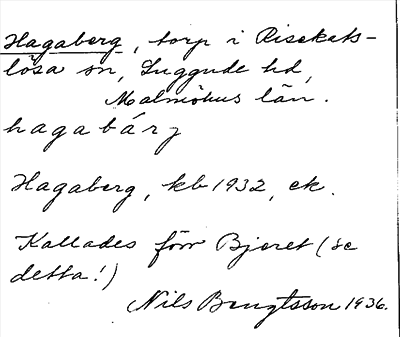 Hagaberg, torp i Risekats-
lösa sn, Luggude hd,
Malmöhus län.
hagabárj
Hagaberg, kb 1932, ek.
Kallades förr Bjäret (se
detta!)
Nils Bengtsson 1936.